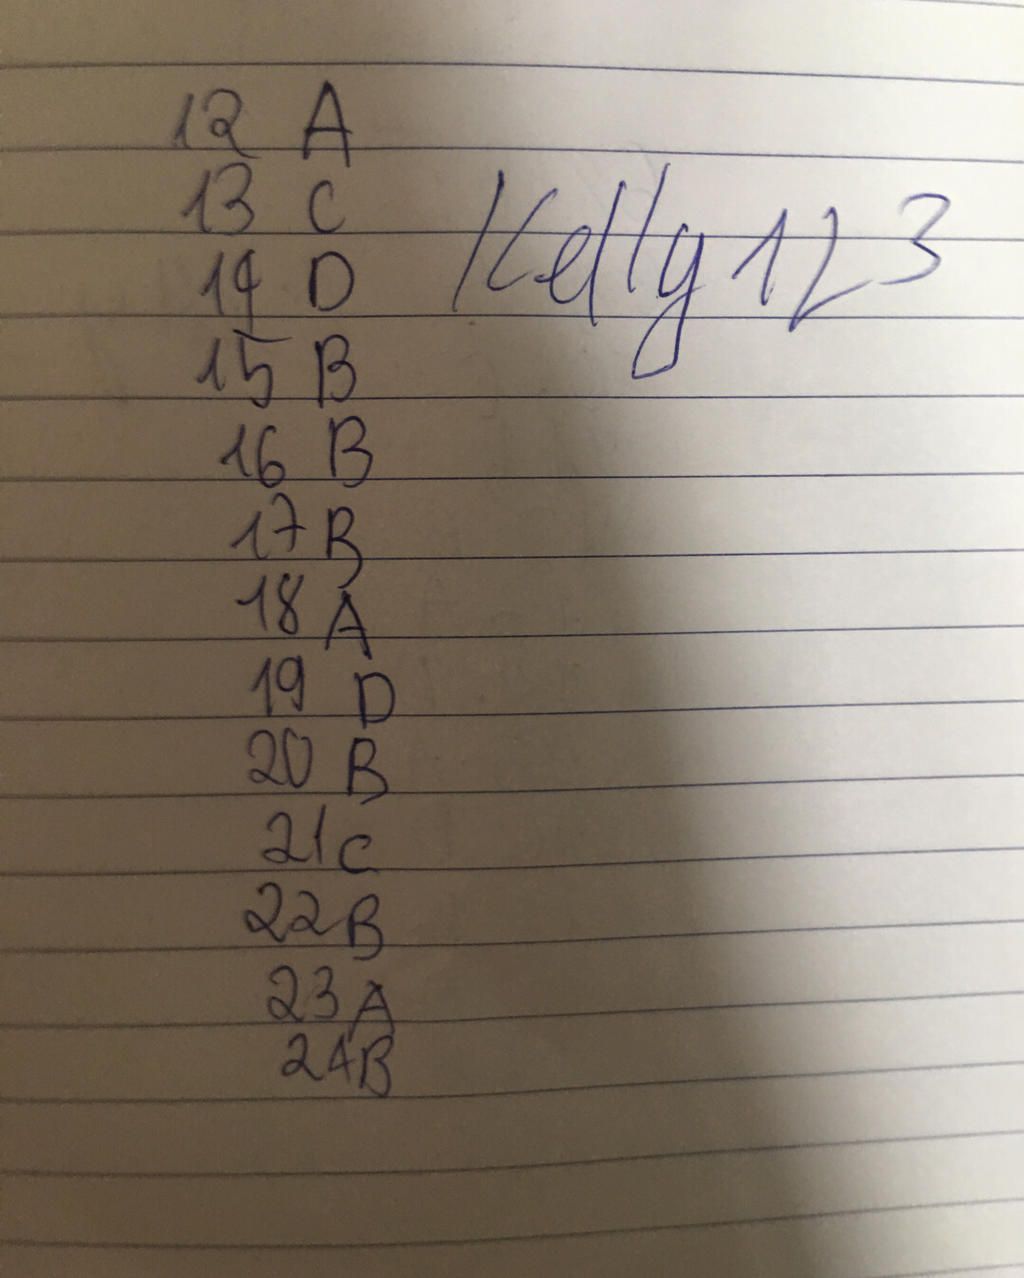 12 A
13 C
14 D
15 B
16 B
17 B
18 A
19 D
20 B
21 C
22 B
23 A
24 B
Kelly 123